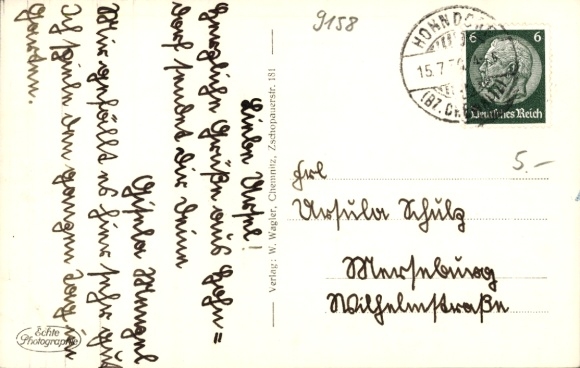 9158
HOHNDORF
15.7.
(BZ. CHEMNITZ)
6 6
Deutsches Reich
5.-
Liebe Ursel!
Herzliche Grüße aus Hohn=
dorf sendet dir Deine
Gisela
Mir gefällt es hier sehr gut
Ich spiele den ganzen Tag im
Garten.
Verlag: W. Wagler, Chemnitz, Zschopauerstr. 181
Frl
Ursula Schulz
Merseburg
Wilhelmstraße
Echte
Photographie